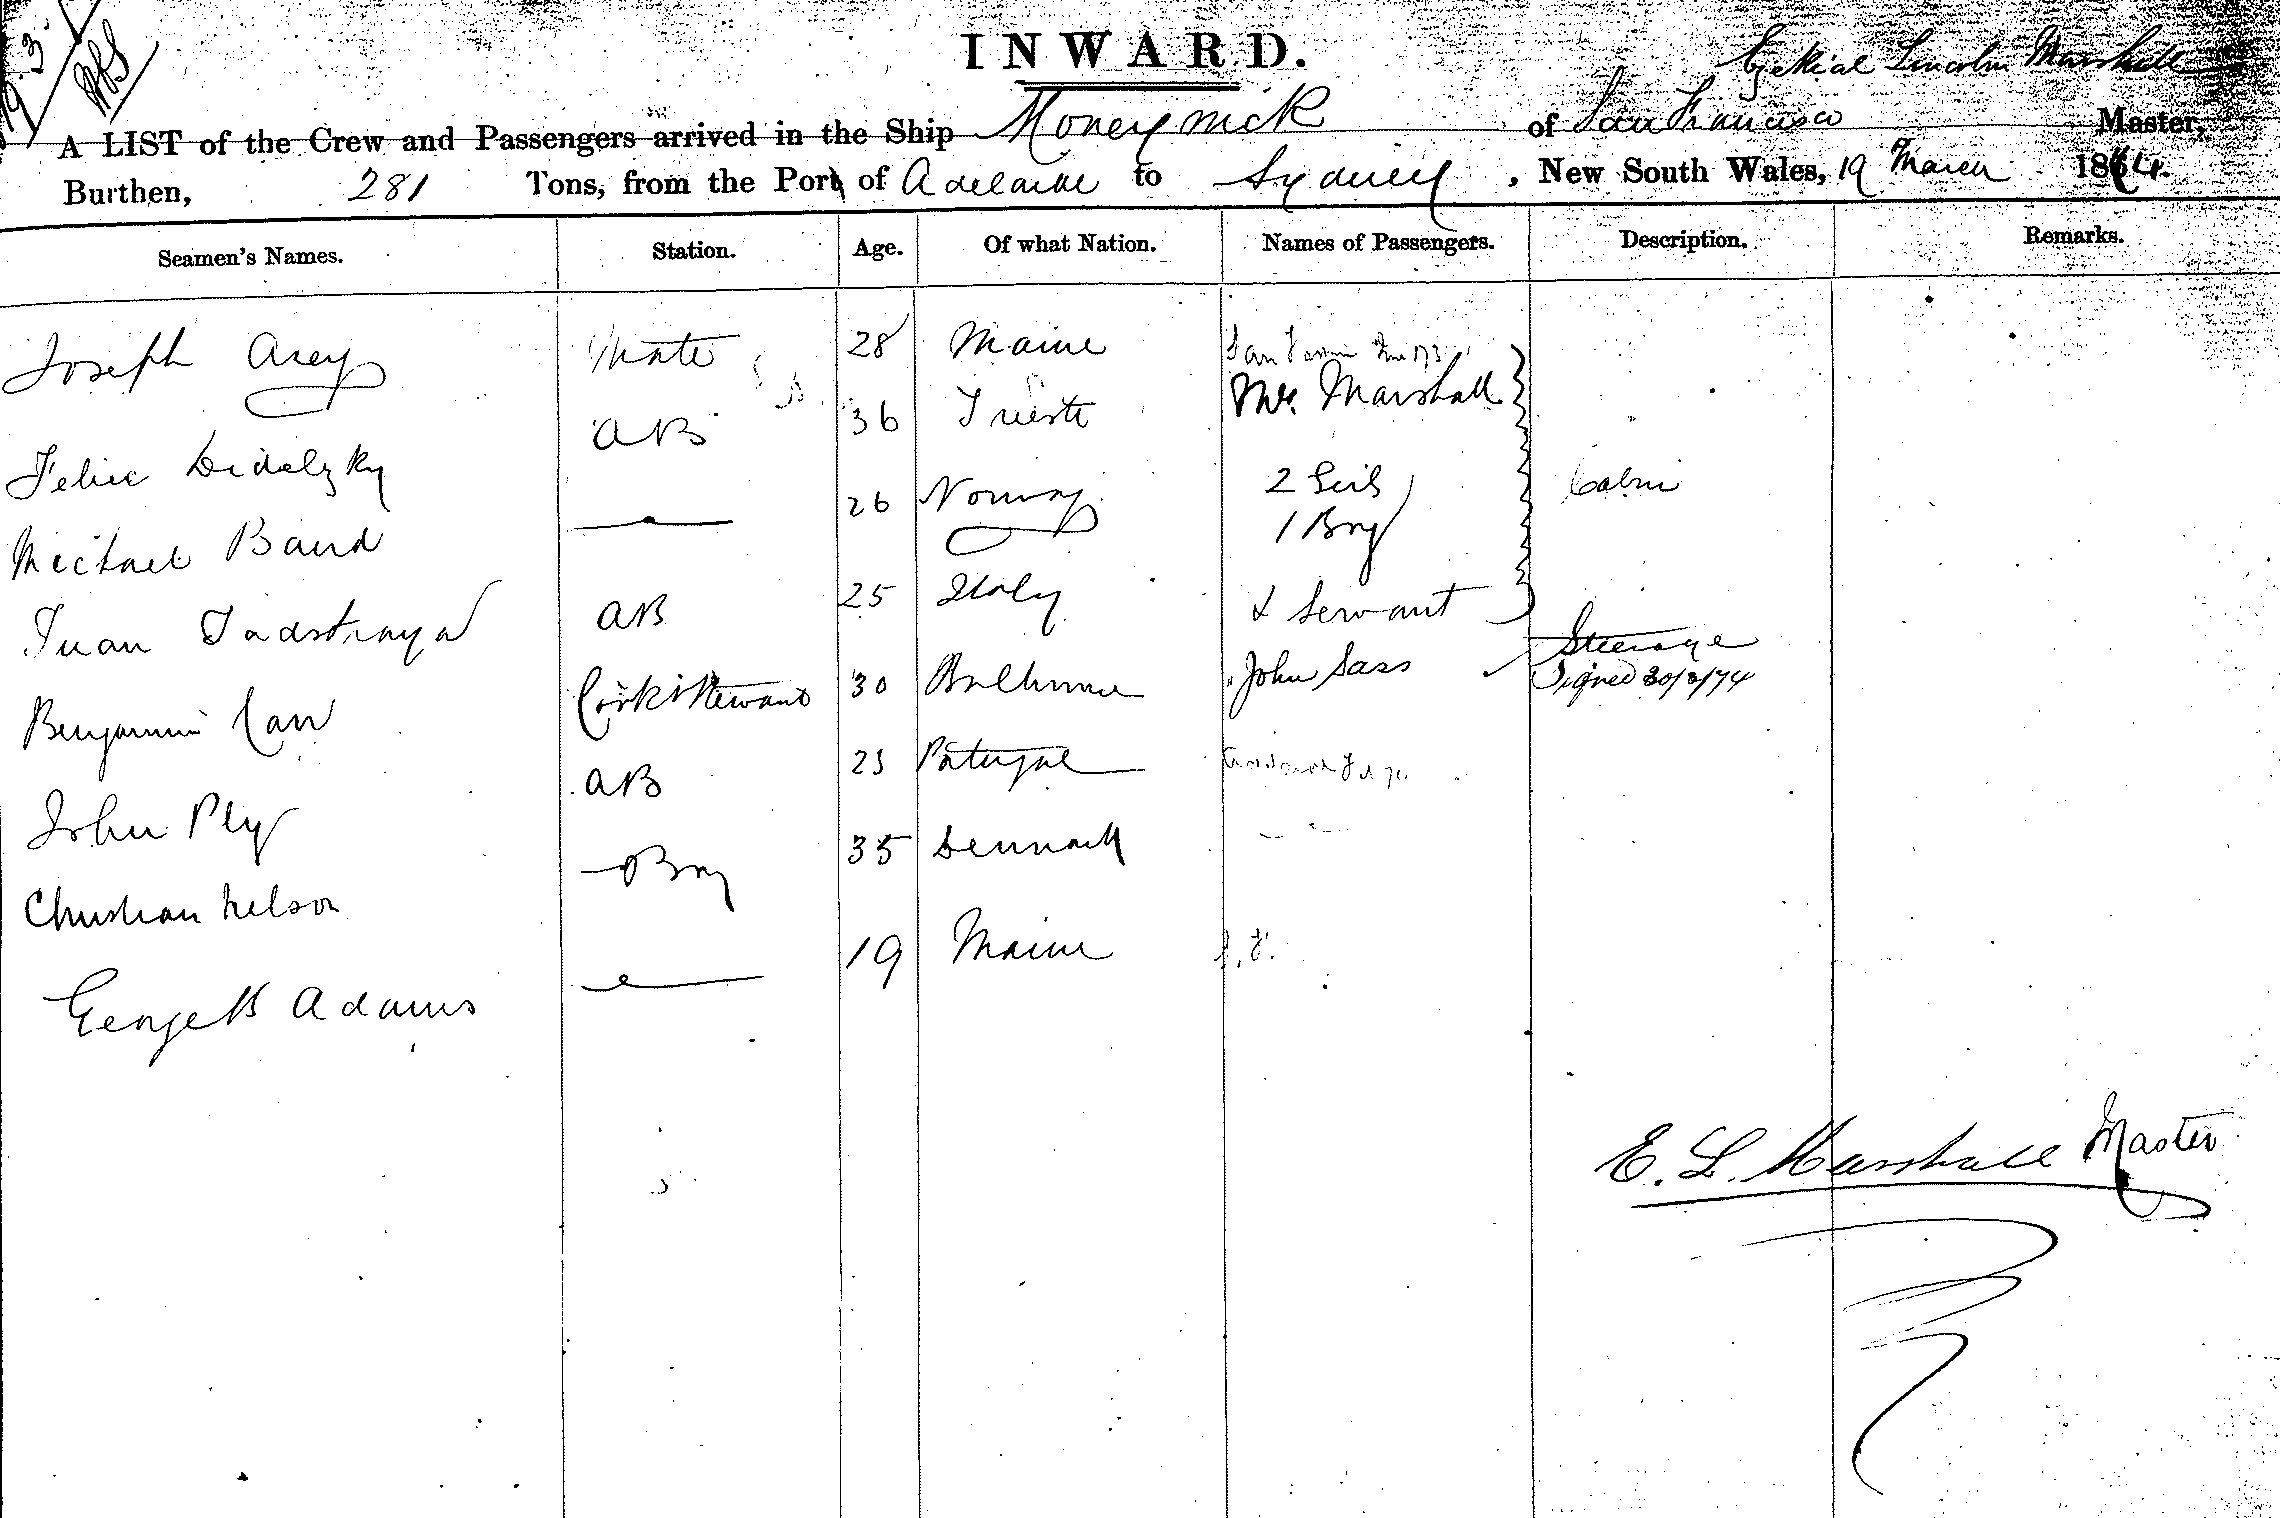 INWARD.
Ezekial Lincoln Marshall
A LIST of the Crew and Passengers arrived in the Ship Moneynick of San Francisco Master,
Burthen, 281 Tons, from the Port of Adelaide to Sydney, New South Wales, 19 March 1874.
Seamen's Names. Station. Age. Of what Nation. Names of Passengers. Description. Remarks.
Joseph Arey Mate 28 Maine
Mrs. Marshall
Felix AB 36 Trieste
2 Girls Cabin
Michael Baird 26 Norway
1 Boy
Juan AB 25 Italy & Servant
Steerage
Benjamin Carr Cook & Steward 30 Baltimore John Sass Signed 30/3/74
John Ply AB 23 Portugal
Christian Nelson Boy 35 Denmark
George B Adams 19 Maine S.F.
E. L. Marshall Master